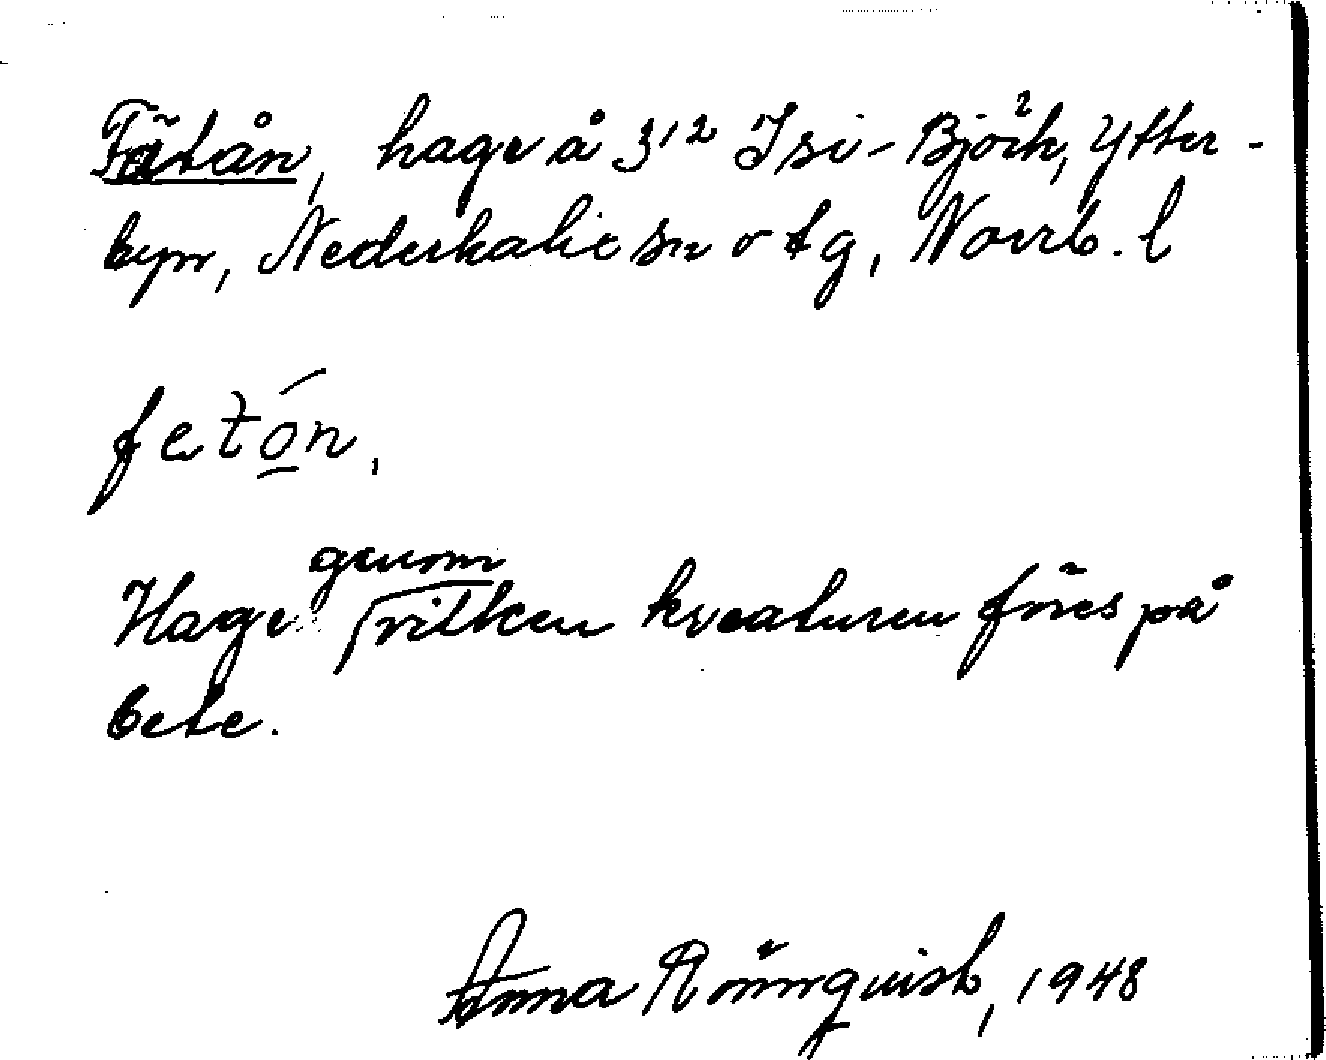 Fätån, hage å 3¹² Isi-Björk, Ytter-
byn, Nederkalix sn o tg, Norrb. l
fetón,
Hage genom vilken kreaturen föres på
bete.
Anna Rönnqvist, 1948